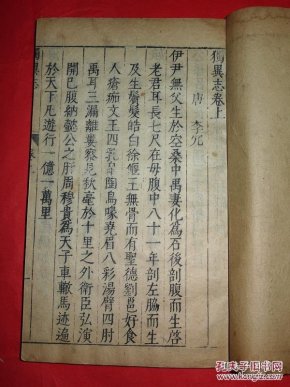 獨異志卷上
唐 李冗
伊尹無父生於空桑中禹妻化為石後剖腹而生啓
老君耳長七尺在母腹中八十一年剖左脇而生
及生鬚髮皓白徐偃王無骨而有聖德劉邕好食
人瘡痂文王四乳皋陶鳥喙堯眉八彩湯臂四肘
禹耳三漏離婁察見秋毫於十里之外衛臣弘演
開已腹納懿公之肝周穆貴為天子車轍馬迹遍
於天下凡遊行一億一萬里
獨異志
卷上
孔夫子旧书网